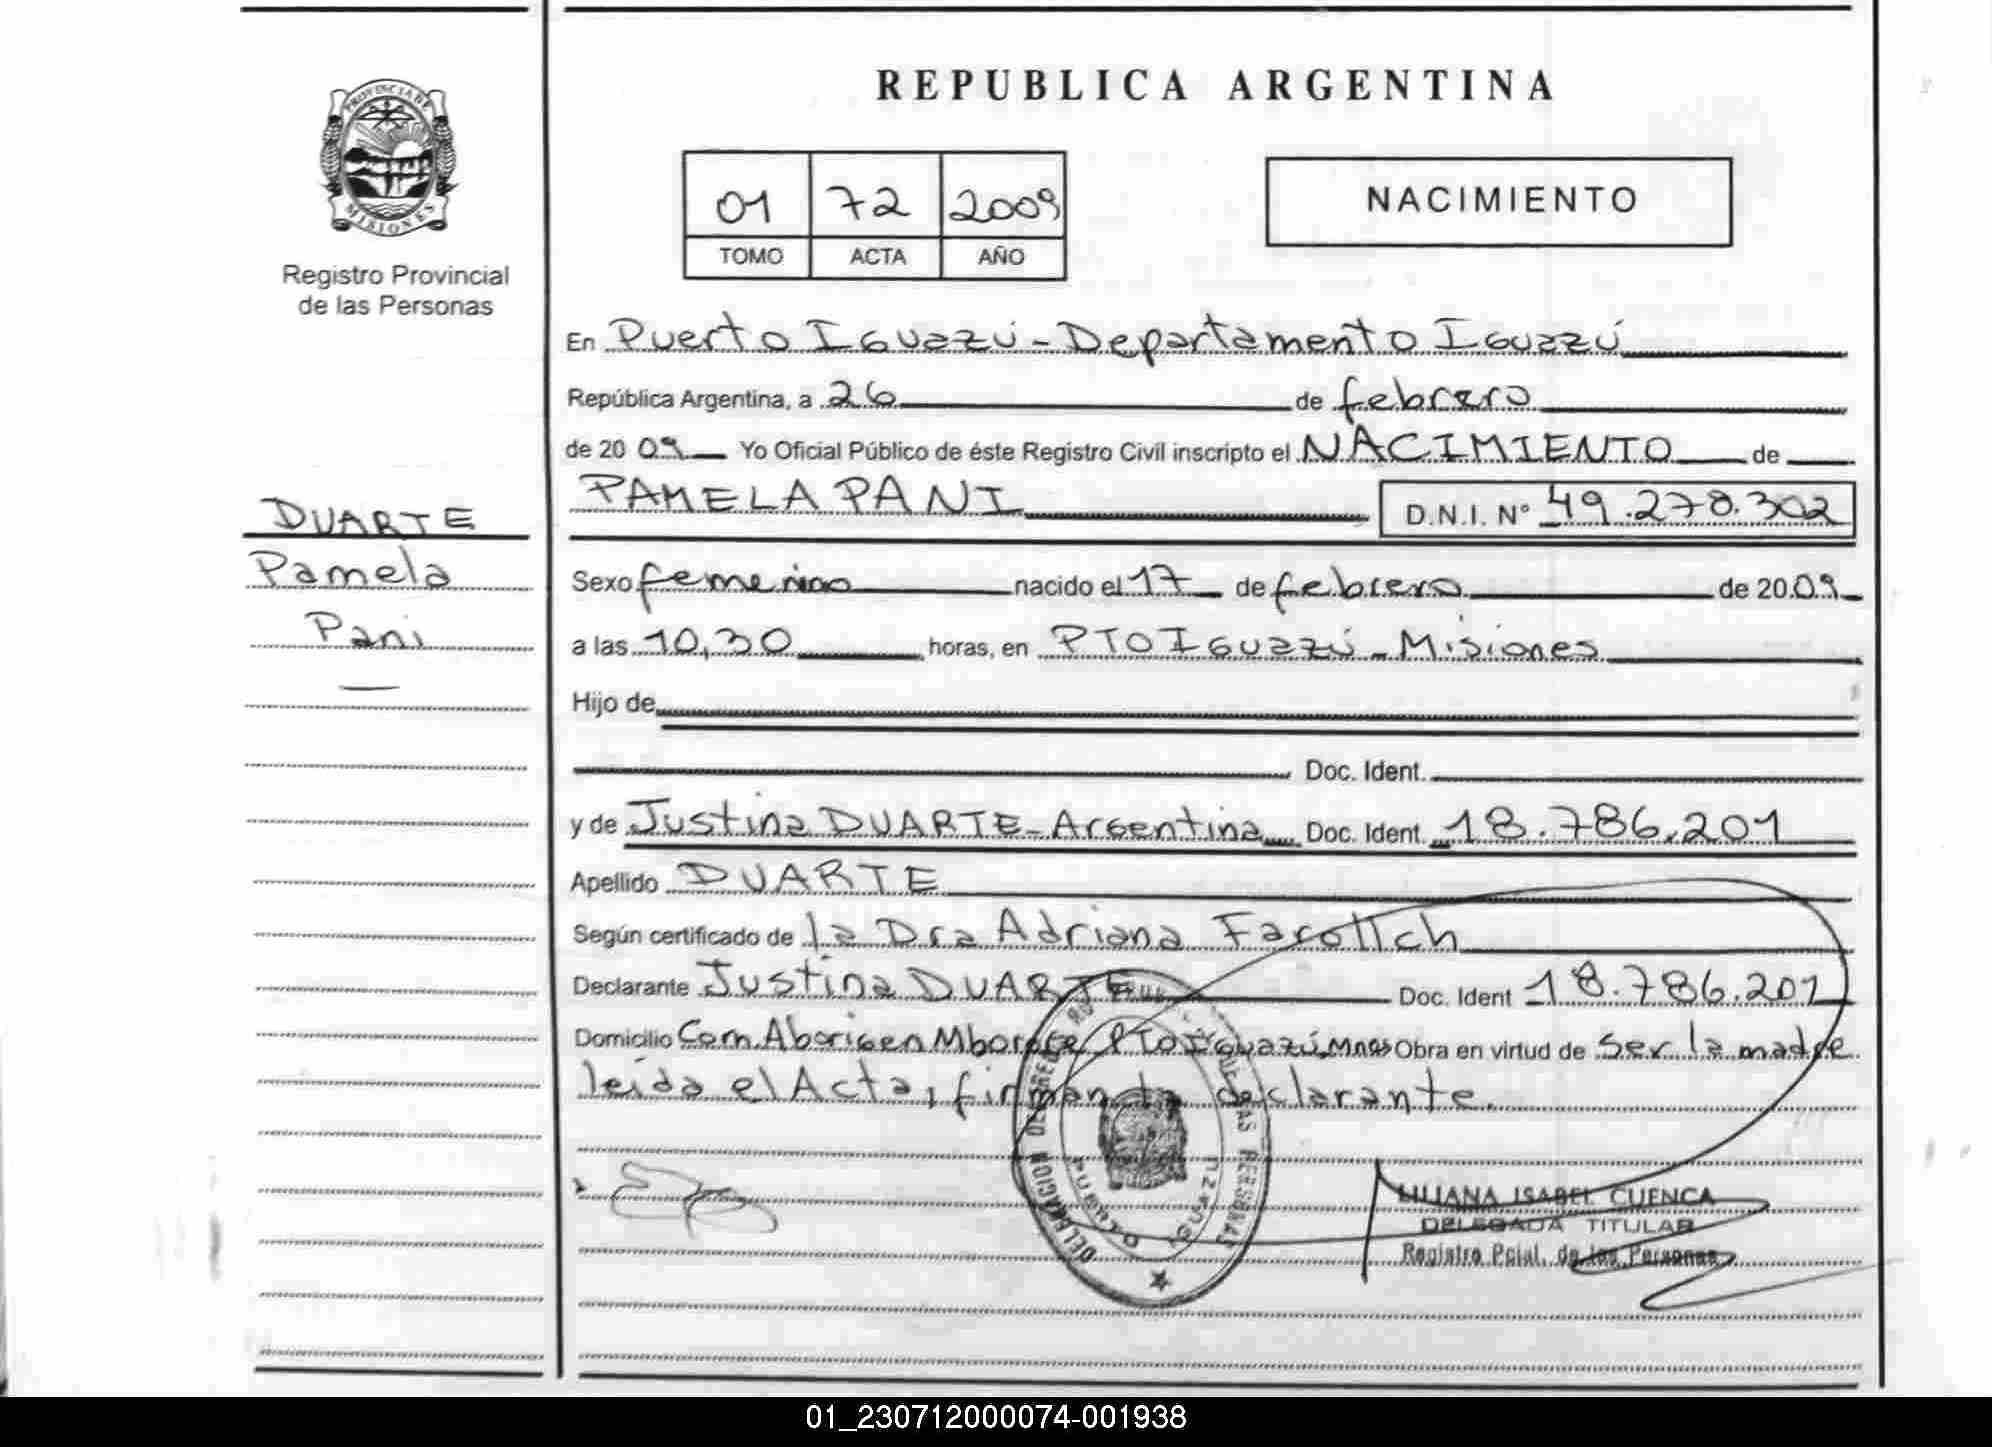 REPUBLICA ARGENTINA
PROVINCIA DE
MISIONES
Registro Provincial
de las Personas
01 72 2009
TOMO ACTA AÑO
NACIMIENTO
En Puerto Iguazú - Departamento Iguazú
República Argentina, a 26 de febrero
de 2009 Yo Oficial Público de éste Registro Civil inscripto el NACIMIENTO de
PAMELA PANI D.N.I. N° 49.278.302
DUARTE
Pamela
Pani
Sexo femenino nacido el 17 de febrero de 2009
a las 10,30 horas, en PTO Iguazú - Misiones
Hijo de
Doc. Ident.
y de Justina DUARTE - Argentina Doc. Ident. 18.786.201
Apellido DUARTE
Según certificado de la Dra Adriana
Declarante Justina DUARTE Doc. Ident 18.786.201
Domicilio Com. Aborigen Mbororé PTO Iguazú, Mnes Obra en virtud de ser la madre
leída el Acta, firman la declarante.
LILIANA ISABEL CUENCA
DELEGADA TITULAR
Registro Pcial. de las Personas
01_230712000074-001938